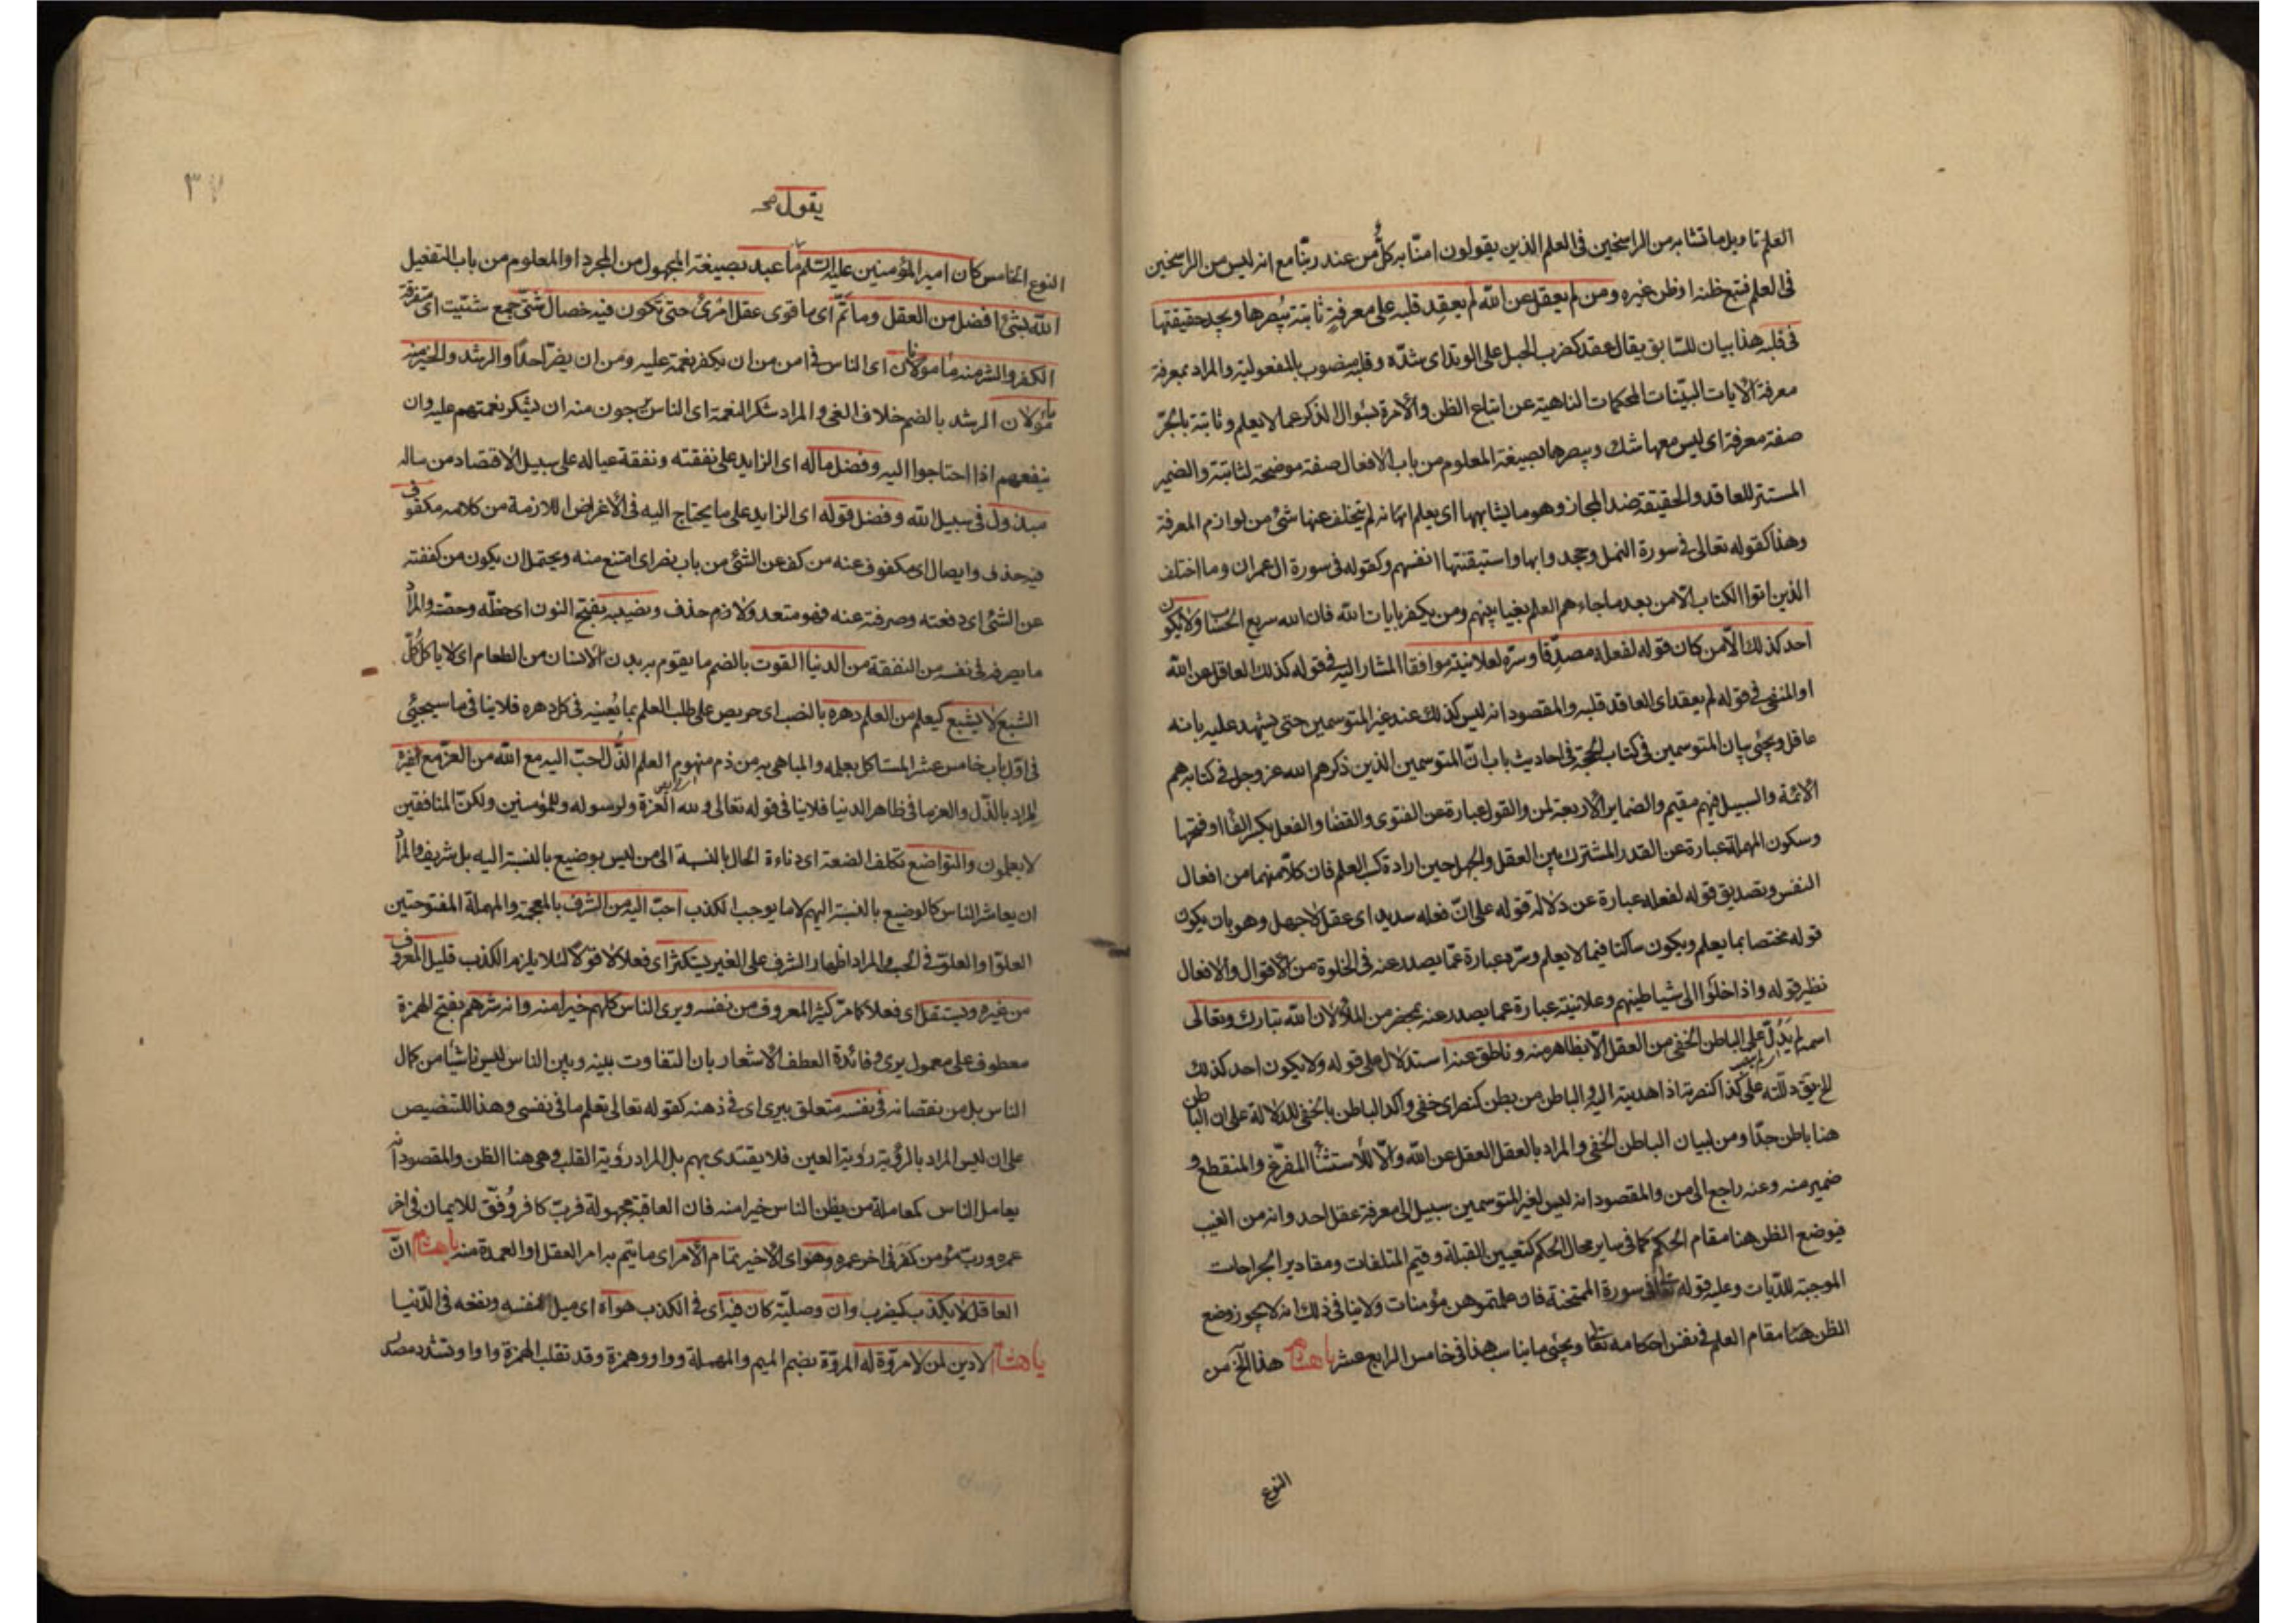 العلم تاويل ما تشابه من الراسخين فى العلم الذين يقولون امنّا به كلٌّ من عند ربّنا مع انه ليس من الراسخين
فى العلم فتبع ظنه او ظن غيره ومن لم يعقل عن الله لم يعقد قلبه على معرفةٍ ثابتة يُبصرها ويجد حقيقتها
فى قلبه هذا بيان للسّابق يقال عقد كضرب الحبل على الوتد اى شدّه وقلبه منصوب بالمفعولية والمراد بمعرفة
معرفة الايات البيّنات المحكمات الناهية عن اتباع الظن والآمرة بسؤال الذكر عما لا يعلم وثابتة بالجرّ
صفة معرفة اى ليس معها شك ويبصرها بصيغة المعلوم من باب الافعال صفة موضحة لثابتة والضمير
المستتر للعاقد والحقيقة ضد المجاز وهو ما يشابهها اى يعلم انها نه لم يتخلف عنها شئ من لوازم المعرفة
وهذا كقوله تعالى فى سورة النمل وجحدوا بها واستيقنتها انفسهم وكقوله فى سورة ال عمران وما اختلف
الذين اوتوا الكتاب الا من بعد ما جاءهم العلم بغيا بينهم ومن يكفر بايات الله فان الله سريع الحساب ولا يكون
احد كذلك الا من كان قوله لفعله مصدّقا وسرّه لعلانيته موافقا المشار اليه فى قوله كذلك العاقل عن الله
او المنفى فى قوله لم يعقد اى العاقد قلبه والمقصود انه ليس كذلك عند غير المتوسمين حتى يشهد عليه بانه
عاقل ويجئ بيان المتوسمين فى كتاب الحجة فى احاديث باب انّ المتوسمين الذين ذكرهم الله عز وجل فى كتابه هم
الائمة والسبيل فيهم مقيم والضماير الاربعة لمن والقول عبارة عن الفتوى والقضا والفعل بكسر الفا او فتحها
وسكون المهملة عبارة عن القدر المشترك بين العقل والجهل حين ارادة كسب العلم فان كلاّ منهما من افعال
النفس وبصديق قوله لفعله عبارة عن دلالة قوله على انّ فعله سديد اى عقل لا جهل وهو بان يكون
قوله مختصا بما يعلم ويكون ساكتا فيما لا يعلم وسرّه عبارة عمّا يصدر عنه فى الخلوة من الاقوال والافعال
نظير قوله واذا خلوا الى شياطينهم وعلانيته عبارة عما يصدر عنه بمحضر من الملأ لان الله تبارك وتعالى
اسمه لم يَدُلّ على الباطن الخفى من العقل الا بظاهر منه وناطق عنه استدلال على قوله ولا يكون احد كذلك
الخ يق دللته على كذا كنصرته اذا هديته اليه والباطن من بطن كنصر اى خفى واكد الباطن بالخفى للدلالة على ان الباطن
هنا باطن جدّا ومن لبيان الباطن الخفى والمراد بالعقل العقل عن الله والاّ للاستثنأ المفرّغ والمنقطع و
ضمير منه وعنه راجع الى من والمقصود انه ليس لغير المتوسمين سبيل الى معرفة عقل احد وانه من الغيب
فيوضع الظن هنا مقام الحكم كما فى ساير محال الحكم كتعيين القبلة وقيم المتلفات ومقادير الجراحات
الموجبة للدّيات وعليه قوله تعالى فى سورة الممتحنة فان علمتموهن مؤمنات ولا ينافى ذلك انه لا يجوز وضع
الظن هنا مقام العلم فى نفس احكامه تعا ويجئ ما يناسب هذا فى خامس الرابع عشر يا هشام هذا الخ من
النوع
٣٧
يقول صح
النوع الخامس كان امير المؤمنين عليه السلم ما عبد بصيغة المجهول من المجرد او المعلوم من باب التفعيل
الله بشئ افضل من العقل وما تمّ اى ما قوى عقل امرئ حتى تكون فيه خصال شتّى جمع شتيت اى متفرقة
الكفر والشر منه مأمونان اى الناس فى امن من ان يكفر نعمة عليه ومن ان يضر احدًا والرشد والخير منه
مأمولان الرشد بالضم خلاف الغى والمراد شكر النعمة اى الناس يرجون منه ان يشكر نعمتهم عليه وان
ينفعهم اذا احتاجوا اليه وفضل ماله اى الزايد على نفقته ونفقة عياله على سبيل الاقتصاد من ماله
مبذول فى سبيل الله وفضل قوله اى الزايد على ما يحتاج اليه فى الاغراض اللازمة من كلامه مكفوف
فيه حذف وايصال اى مكفوف عنه من كف عن الشئ من باب نصر اى امتنع منه ويحتمل ان يكون من كففته
عن الشئ اى دفعته وصرفته عنه فهو متعد ولازم حذف ونصيبه بفتح النون اى حظّه وحصّته والمراد
ما يصرفه فى نفسه من النفقة من الدنيا القوت بالضم ما يقوم به بدن الانسان من الطعام اى لا ياكل كلّ
الشبع لا يشبع كيعلم من العلم دهره بالنصب اى حريص على طلب العلم بما يُعينه فى كل دهره فلا ينافى ما سيجئى
فى اوّل باب خامس عشر المستاكل بعلمه والمباهى به من ذم منهوم العلم الذّل احبّ اليه مع الله من العزّ مع غيره
المراد بالذّل والعز ما فى ظاهر الدنيا فلا ينافى قوله تعالى ولله العزة ولرسوله وللمؤمنين ولكنّ المنافقين
لا يعلمون والتواضع تكلف الضعة اى دناءة الحال بالنسبة الى من ليس بوضيع بالنسبة اليه بل شريف والمراد
ان يعاشر الناس كالوضيع بالنسبة اليهم لا ما يوجب الكذب احبّ اليه من الشرف بالمعجمة والمهملة المفتوحتين
العلوّ او العلوّ فى الحب والمراد اظهار الشرف على الغير يستكثر اى فعلا لا قولا لئلا يلزم الكذب قليل المعروف
من غيره ويستقل اى فعلا كما مرّ كثير المعروف من نفسه ويرى الناس كلهم خيرا منه وانه شرهم بفتح الهمزة
معطوف على معمول يرى وفائدة العطف الاشعار بان التفاوت بينه وبين الناس ليس ناشيًا من كمال
الناس بل من نقصانه فى نفسه متعلق بيرى اى فى ذهنه كقوله تعالى تعلم ما فى نفسى وهذا للتنصيص
على ان ليس المراد بالرؤية رؤية العين فلا يقتدى بهم بل المراد رؤية القلب وهى هنا الظن والمقصود انه
يعامل الناس كمعاملة من يظن الناس خيرا منه فان العاقبة مجهولة فربّ كافر وُفّق للايمان فى اخر
عمره وربّ مؤمن كفر فى اخر عمره وهو اى الاخير تمام الامر اى ما يتم به امر العقل او العمدة منه يا هشام انّ
العاقل لا يكذب كيضرب وان وصليّة كان فيه اى فى الكذب هواه اى ميل نفسه ونفعه فى الدّنيا
يا هشام لا دين لمن لا مروّة له المروّة بضم الميم والمهملة وواو وهمزة وقد تقلب الهمزة واوا وتشدد مصدر